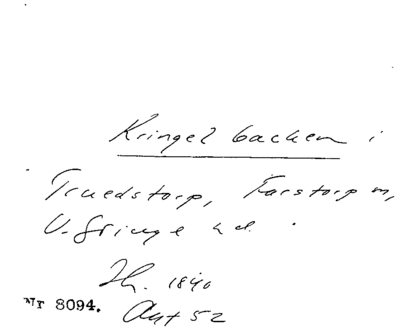 Kringelbacken i
Truedstorp, Farstorp sn,
V. Göinge hd.
Ih. 1840
Nr 8094. Aut 52